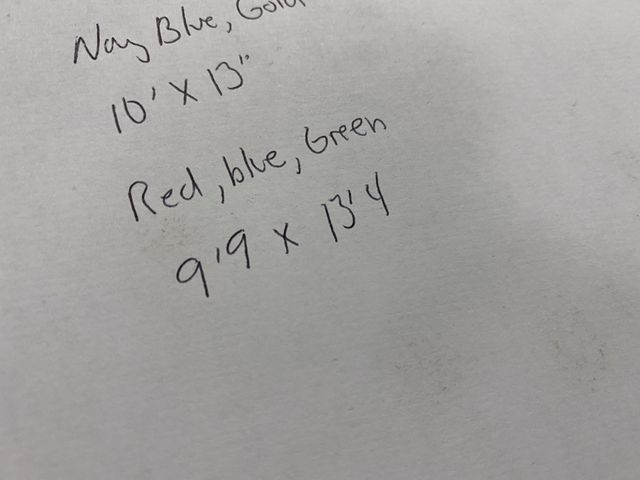 Navy Blue, Gold
10' X 13"
Red, blue, Green
9'9 x 13'4